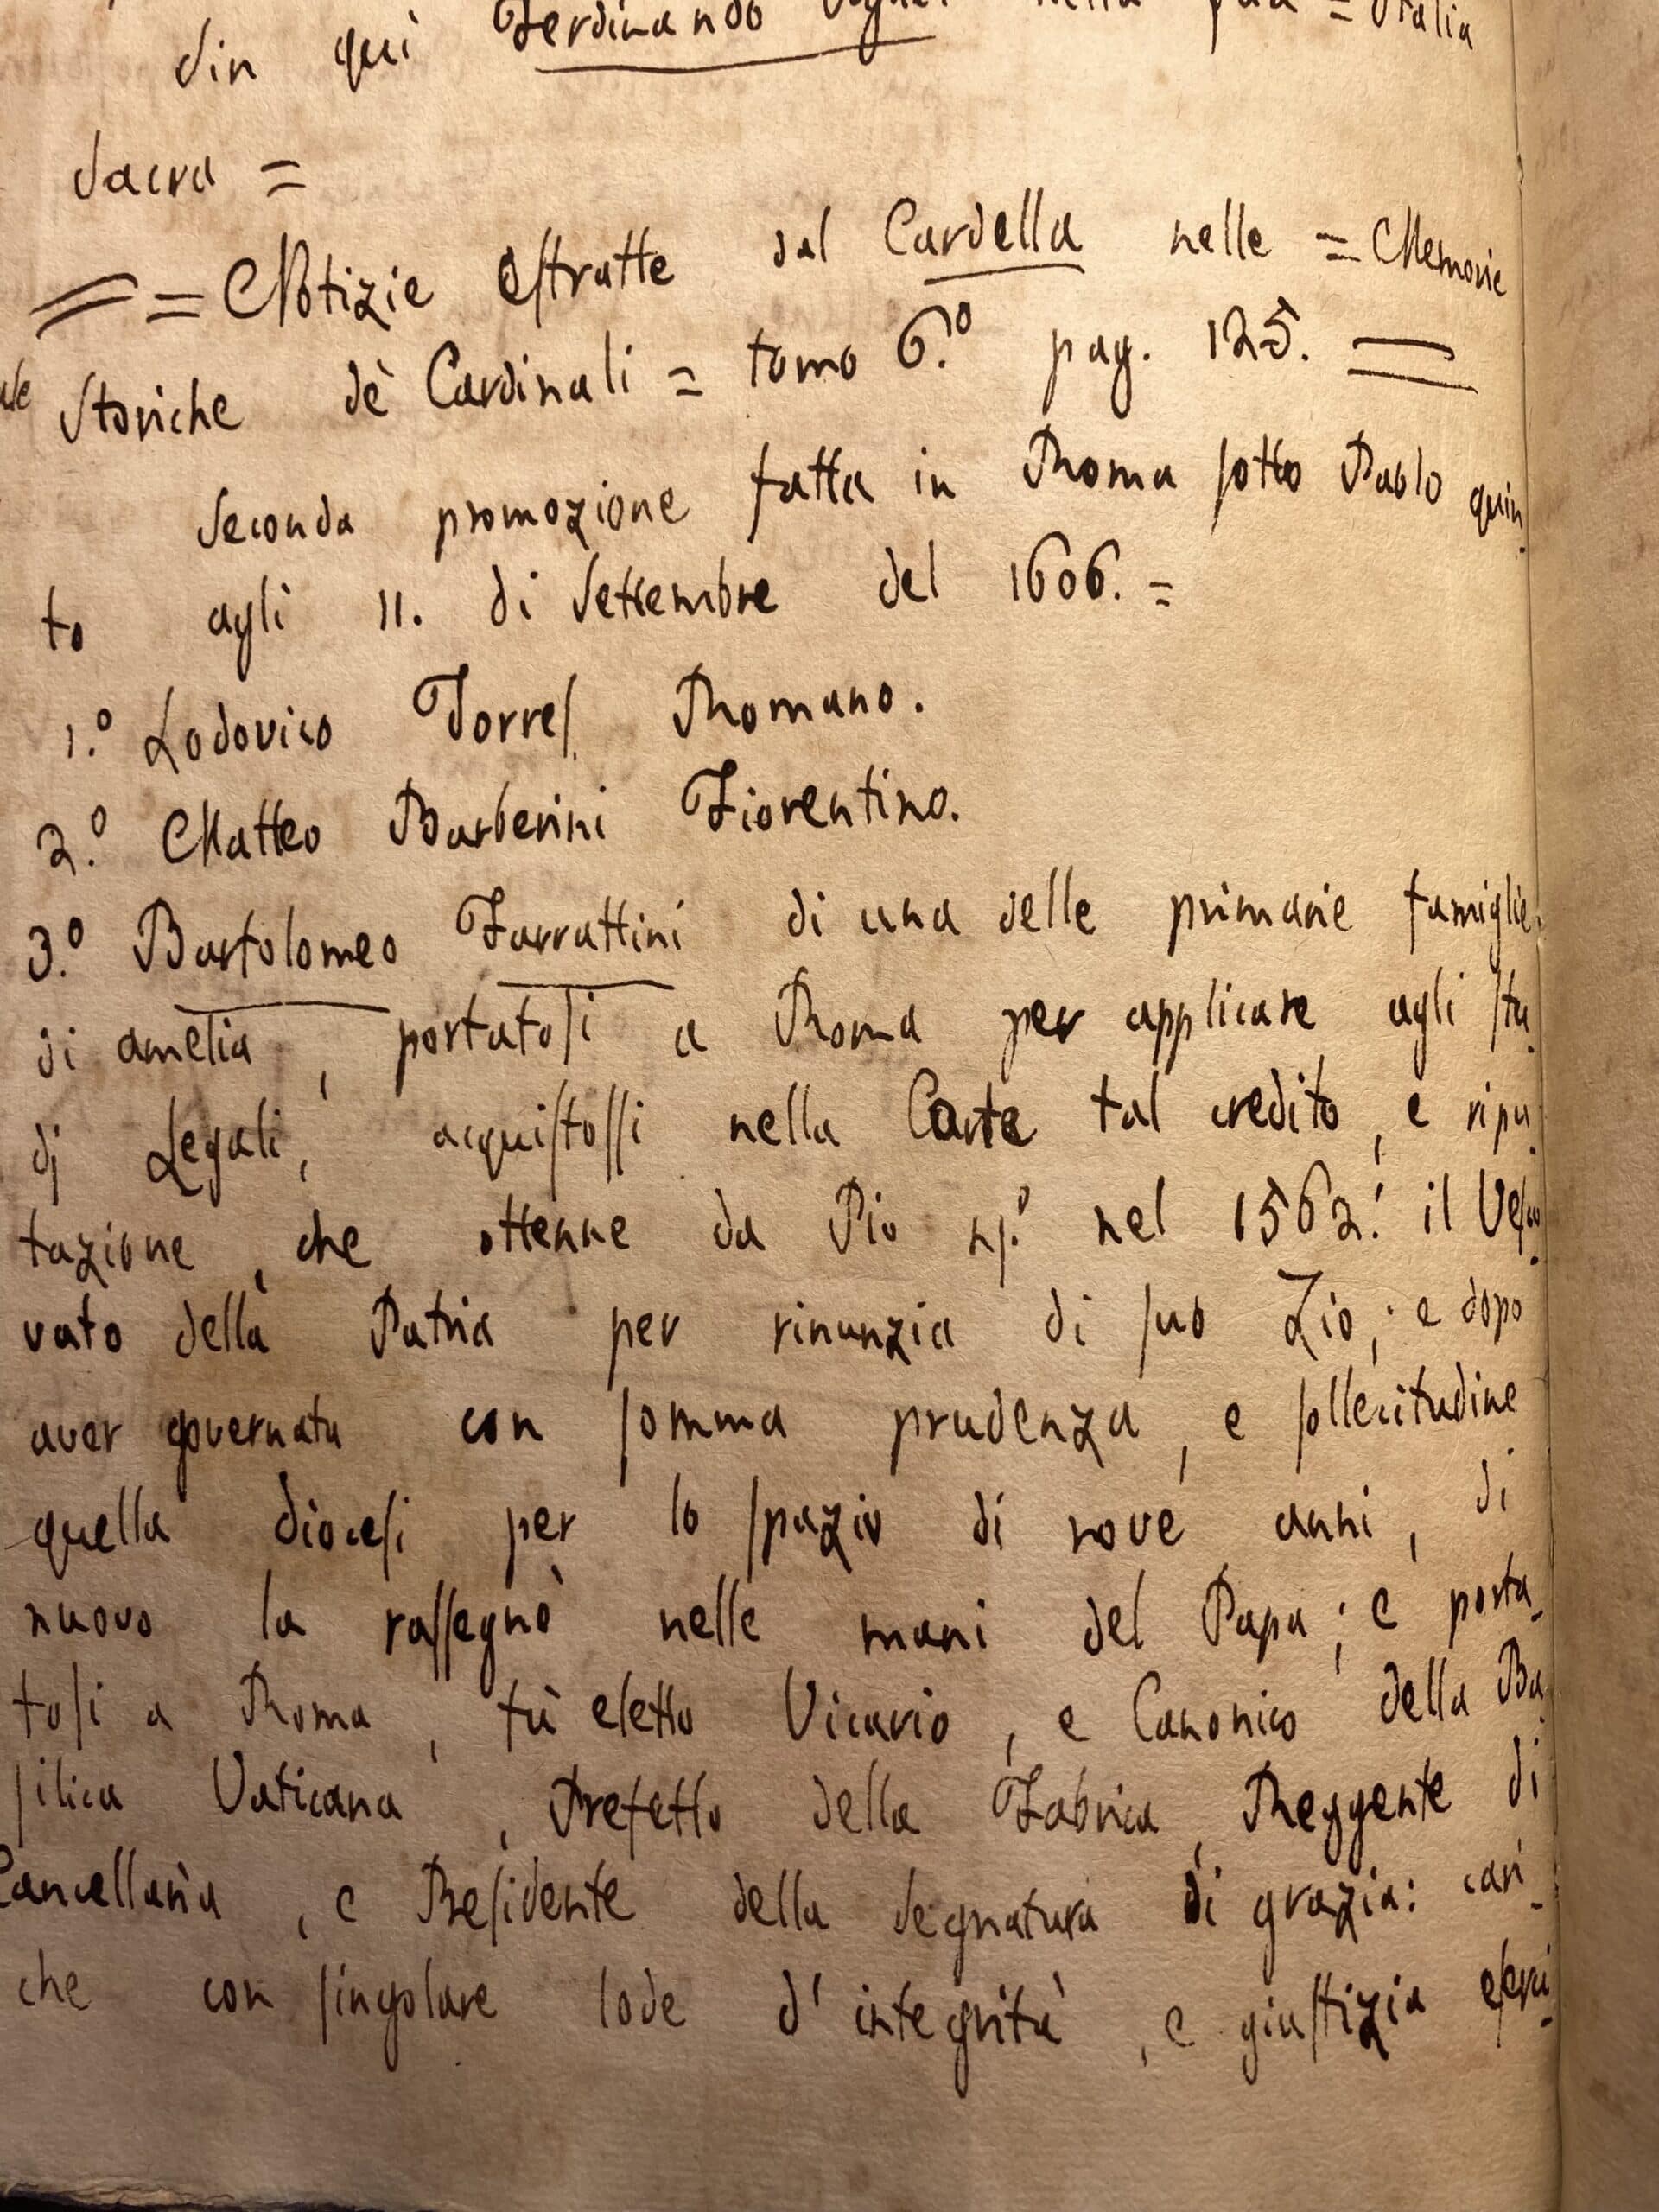 Sin qui Ferdinando nella sua = Italia
Sacra =
= Notizie estratte dal Cardella nelle = Memorie
Storiche dè Cardinali = tomo 6.º pag. 125.
Seconda promozione fatta in Roma sotto Paolo quin
to agli 11. di Settembre del 1606. =
1.º Lodovico Torres Romano.
2.º Matteo Barberini Fiorentino.
3.º Bartolomeo Farrattini di una delle primarie famiglie
di amelia, portatosi a Roma per applicare agli stu
dj Legali, acquistossi nella Corte tal credito, e ripu
tazione, che ottenne da Pio nel 1562. il Vesco
vato della Patria per rinunzia di suo Zio; e dopo
aver governata con somma prudenza, e sollecitudine
quella diocesi per lo spazio di nove anni, di
nuovo la rassegnò nelle mani del Papa; e porta-
tosi a Roma, fù eletto Vicario, e Canonico della Ba
silica Vaticana, Prefetto della Fabrica, Reggente di
Cancellaria, e Presidente della Segnatura di grazia: cari-
che con singolare lode d' integrità, e giustizia eserci-